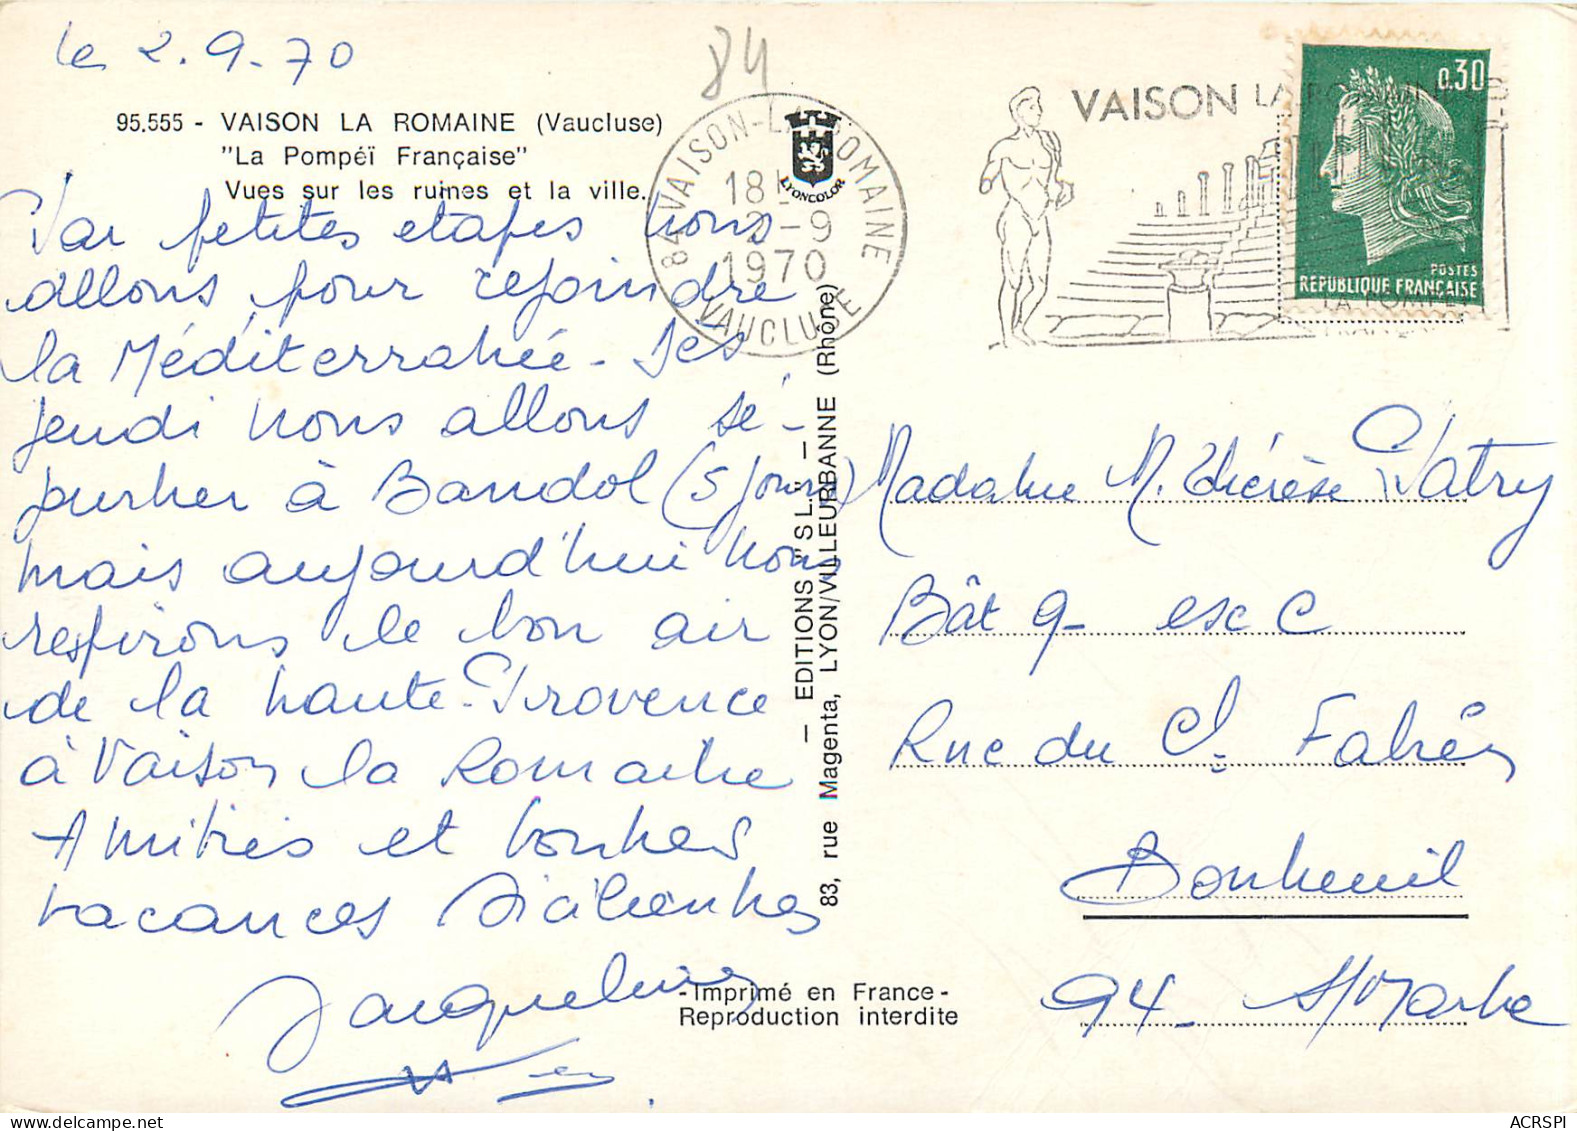 le 2.9-70
84
95.555 - VAISON LA ROMAINE (Vaucluse)
"La Pompéï Française"
Vues sur les ruines et la ville.
Par petites etapes nous
allons pour rejoindre
la Méditerranée - Dès
jeudi nous allons sé-
journer à Bandol (5 jours)
mais aujourd'hui nous
respirons le bon air
de la haute-Provence
à Vaison la Romaine
Amitiés et bonnes
vacances Siciliennes
Jacqueline
84 VAISON-LA-ROMAINE
18H
2-9
1970
VAUCLUSE
LYONCOLOR
— EDITIONS "S L" —
83, rue Magenta, LYON/VILLEURBANNE (Rhône)
- Imprimé en France -
Reproduction interdite
VAISON LA
0.30
POSTES
REPUBLIQUE FRANÇAISE
Madame M. Thérèse Vatry
Bât 9- esc C
Rue du Cl. Fabien
Bonneuil
94- S/Marne
ACRSPI